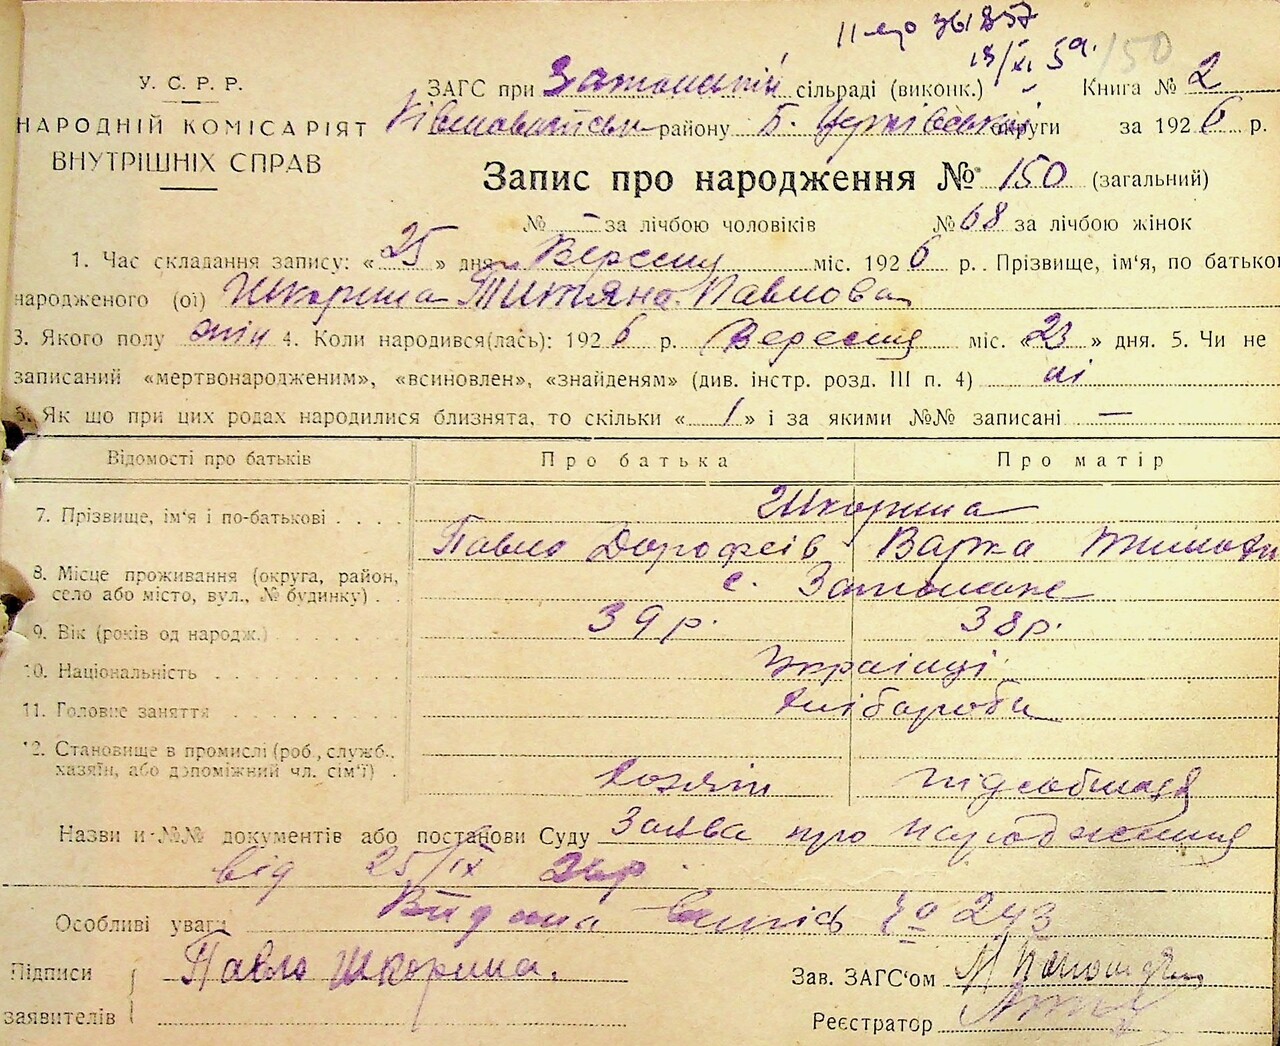 II-ЕЯ 361857
13/XI 59. 150
У. С. Р. Р.
НАРОДНІЙ КОМІСАРІЯТ
ВНУТРІШНІХ СПРАВ
ЗАГС при Затонській сільраді (виконк.) - Книга № 2
району Б. Церківської округи за 1926 р.
Запис про народження № 150 (загальний)
№ - за лічбою чоловіків № 68 за лічбою жінок
1. Час складання запису: « 25 » дня Вересня міс. 1926 р.. Прізвище, ім'я, по батькові
народженого (ої) Шкорина Титяна Павлова
3. Якого полу жін 4. Коли народився(лась): 1926 р. Вересня міс. « 23 » дня. 5. Чи не
записаний «мертвонародженим», «всиновлен», «знайденям» (див. інстр. розд. III п. 4) ні
6. Як що при цих родах народилися близнята, то скільки « 1 » і за якими №№ записані —
Відомості про батьків Про батька Про матір
7. Прізвище, ім'я і по-батькові . . . . Шкорина
Павло Дорофеїв Варка Тимохи
8. Місце проживання (округа, район,
село або місто, вул., № будинку) . . с. Затонське
9. Вік (років од народж.) . . . . . 39 р. 38 р.
10. Національність . . . . . . . Українці
11. Головне заняття . . . . . . . Хлібароби
12. Становище в промислі (роб., служб.,
хазяїн, або допоміжний чл. сім'ї) . Хозяїн підсобниця
Назви и №№ документів або постанови Суду Заява про народження
від 25/IX 26 р.
Особливі уваги Видана випись № 243
Підписи Павло Шкорина. Зав. ЗАГС'ом
заявителів Реєстратор